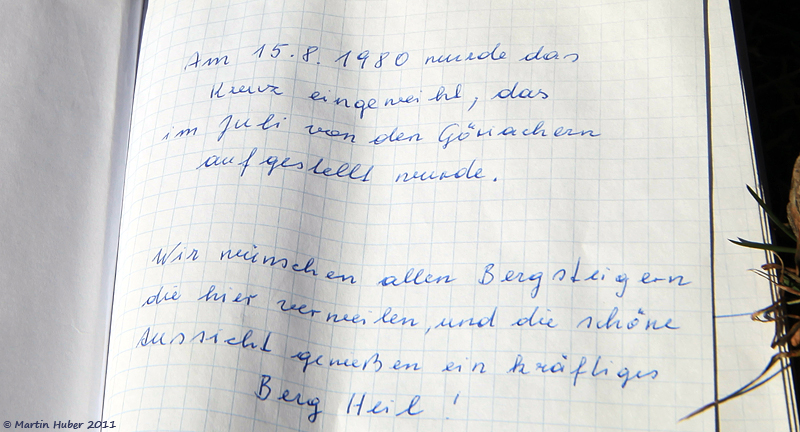 Am 15.8.1980 wurde das
Kreuz eingeweiht, das
im Juli von den Göriachern
aufgestellt wurde.
Wir wünschen allen Bergsteigern
die hier verweilen, und die schöne
Aussicht genießen ein kräftiges
Berg Heil!
© Martin Huber 2011